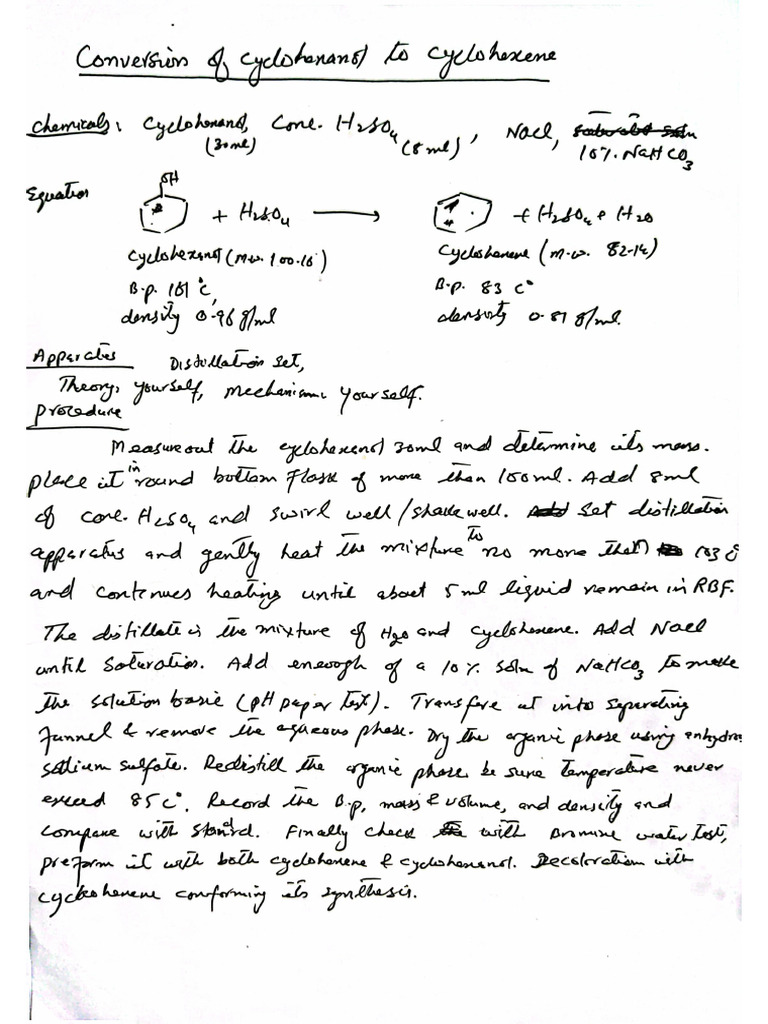 Conversion of cyclohexanol to cyclohexene
Chemicals: Cyclohexanol, Conc. H2SO4, NaCl,
(30ml) (8ml) 10% NaHCO3
Equation
OH
+ H2SO4 → + H2SO4 + H2O
cyclohexanol (m.w. 100.16) Cyclohexene (m.w. 82.14)
B.p. 161 °C, B.p. 83 C°
density 0.96 g/ml density 0.81 g/ml.
Apparatus Distillation set,
Theory: yourself, Mechanism: yourself.
Procedure
Measure out the cyclohexanol 30ml and determine its mass.
place it in round bottom flask of more than 100ml. Add 8ml
of conc. H2SO4 and swirl well/shake well. Set distillation
apparatus and gently heat the mixture to no more than 103 C°
and continues heating until about 5ml liquid remain in RBF.
The distillate is the mixture of H2O and cyclohexene. Add NaCl
until Saturation. Add enough of a 10% soln of NaHCO3 to make
the solution basic (pH paper test). Transfere it into separating
funnel & remove the aqueous phase. Dry the organic phase using anhydrous
sodium sulfate. Redistill the organic phase, be sure temperature never
exceed 85 C°. Record the B.p, mass & volume, and density and
compare with standard. Finally check with Bromine water test,
preform it with both cyclohexene & cyclohexanol. Decoloration with
cyclohexene conforming its synthesis.